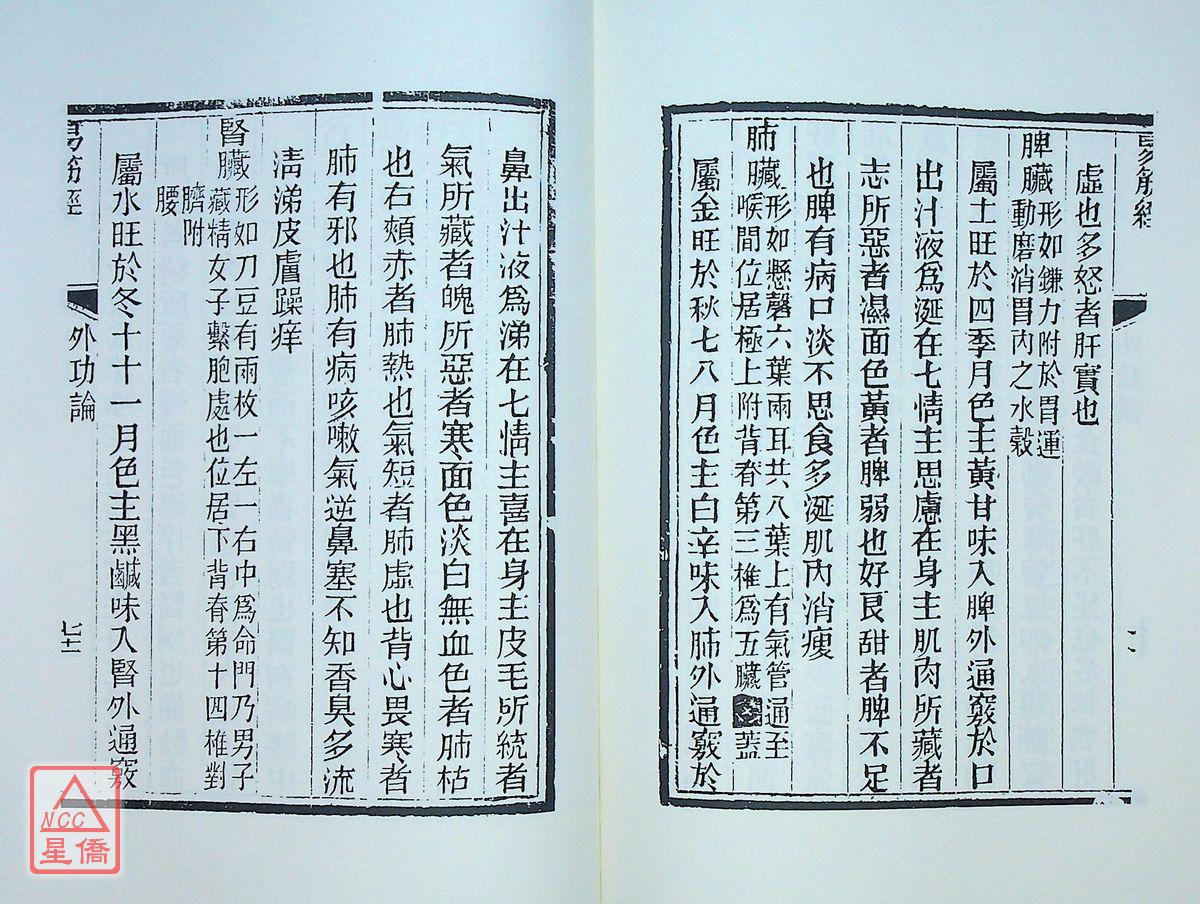 易筋經
虛也多怒者肝實也
脾臟形如鐮力附於胃運
動磨消胃內之水穀
屬土旺於四季月色主黃甘味入脾外通竅於口
出汁液爲涎在七情主思慮在身主肌肉所藏者
志所惡者濕面色黃者脾弱也好艮甜者脾不足
也脾有病口淡不思食多涎肌內消瘦
肺臟形如懸磬六葉兩耳共八葉上有氣管通至
喉間位居極上附背脊第三椎爲五臟蓋
屬金旺於秋七八月色主白辛味入肺外通竅於
鼻出汁液爲涕在七情主喜在身主皮毛所統者
氣所藏者魄所惡者寒面色淡白無血色者肺枯
也右頰赤者肺熱也氣短者肺虛也背心畏寒者
肺有邪也肺有病咳嗽氣逆鼻塞不知香臭多流
淸涕皮膚躁痒
腎臟形如刀豆有兩枚一左一右中爲命門乃男子
藏精女子繫胞處也位居下背脊第十四椎對
臍附
腰
屬水旺於冬十十一月色主黑鹹味入腎外通竅
易筋經
外功論
七十二
NCC
星僑